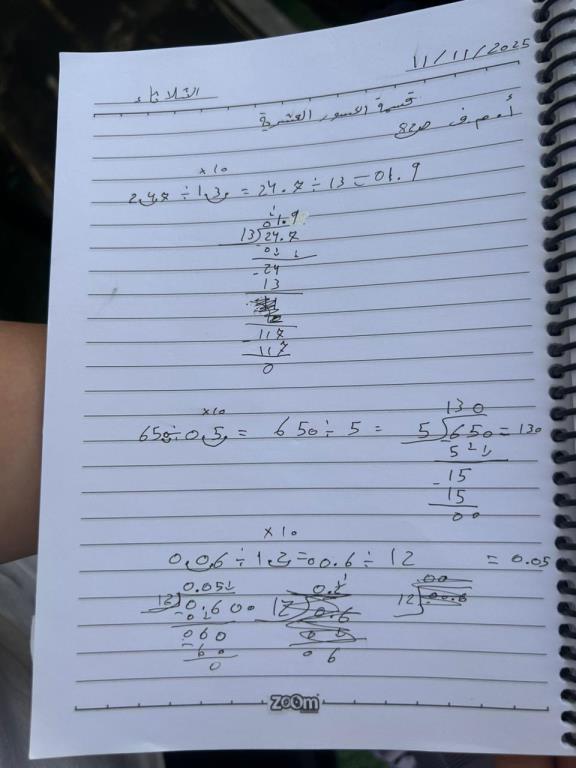 11/11/2025
الثلاثاء
قسمة الكسور العشرية
× 10
2.4.7 ÷ 1.3. = 24.7 ÷ 13 = 01.9
01.9
13 24.7
- 24
13
117
117
0
×10
65 ÷ 0.5. = 650 ÷ 5 = 5 650 = 130
130
- 15
15
00
× 10
0.0.6 ÷ 1.2. = 00.6 ÷ 12 = 0.05
0.05
12 0.600
060
- 60
0
06
zoom